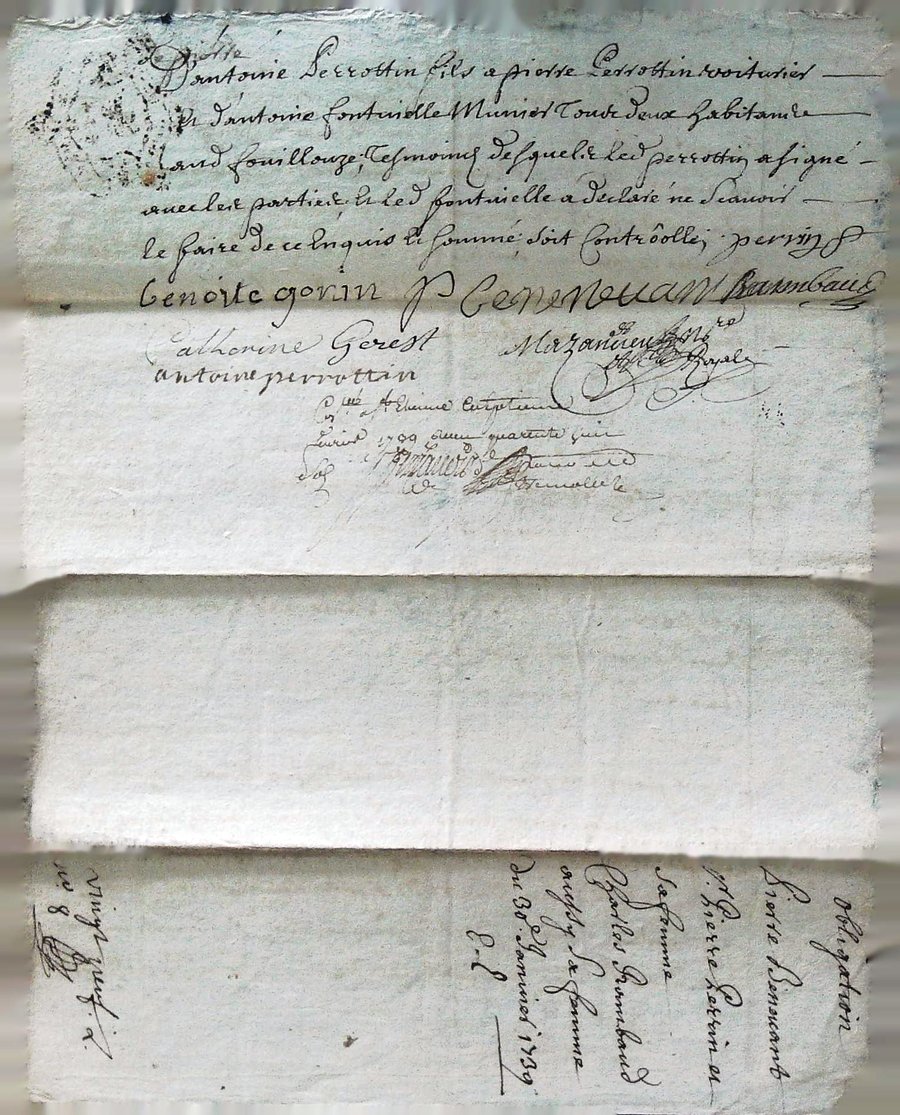 D'antoine Perrottin fils a pierre Perrottin voiturier
et d'antoine fontvielle Munier Tous deux habitants
aud fouillouze, Tesmoins desquels led perrottin a signé
avec les parties, et led fontvielle a declaré ne scavoir
le faire de ce Enquis et sommé, soit Contrôollé; perrin
benoite gonin P benenevant Rambaud
Catherine Gerest Mazandieu nore
antoine perrottin Royale
a St Etienne
1739 quarente huit
sols
obligation
pierre benevant
Pierre Perrin et
sa femme
Charles Rambaud
aussy sa femme
du 30e Janvier 1739
E. L
vingt neuf
n. 8